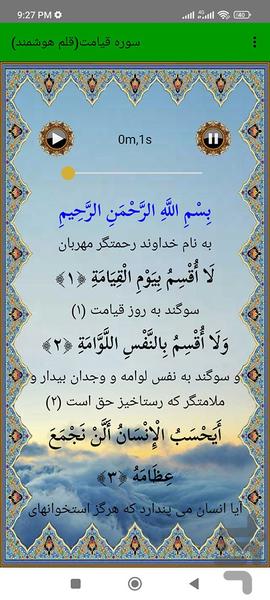 9:27 PM
سوره قیامت(قلم هوشمند)
0m,1s
بِسْمِ اللَّهِ الرَّحْمَنِ الرَّحِيمِ
به نام خداوند رحمتگر مهربان
لَا أُقْسِمُ بِيَوْمِ الْقِيَامَةِ ﴿١﴾
سوگند به روز قیامت (۱)
وَلَا أُقْسِمُ بِالنَّفْسِ اللَّوَّامَةِ ﴿٢﴾
و سوگند به نفس لوامه و وجدان بیدار و
ملامتگر که رستاخیز حق است (۲)
أَيَحْسَبُ الْإِنْسَانُ أَلَّنْ نَجْمَعَ
عِظَامَهُ ﴿٣﴾
آیا انسان می پندارد که هرگز استخوانهای